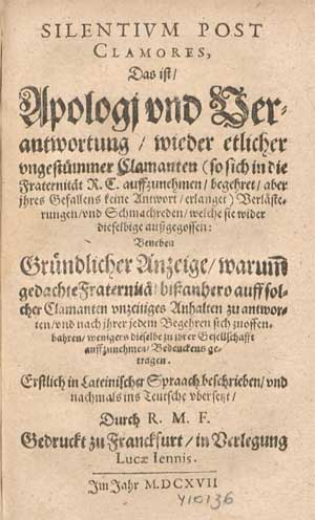 SILENTIVM POST
CLAMORES,
Das ist/
Apologj vnd Ver-
antwortung / wieder etlicher
vngestümmer Clamanten (so sich in die
Fraternität R. C. auffzunehmen/ begehret/ aber
jhres Gefallens keine Antwort/ erlanget) Verläste-
rungen/ vnd Schmachreden/ welche sie wider
dieselbige außgegossen:
Beneben
Gründlicher Anzeige/ warumb
gedachte Fraternitä bißanhero auff sol-
cher Clamanten vnzeitiges Anhalten zu antwor-
ten/ vnd nach jhrer jedem Begehren sich zuoffen-
bahren/ wenigers dieselbe zu jhrer Gesellschafft
auffzunehmen/ Bedenckens ge-
tragen.
Erstlich in Lateinischer Spraach beschrieben/ vnd
nachmals ins Teutsche vbersetzt/
Durch R. M. F.
Gedruckt zu Franckfurt/ in Verlegung
Lucæ Iennis.
Jm Jahr M.DCXVII
Y10136